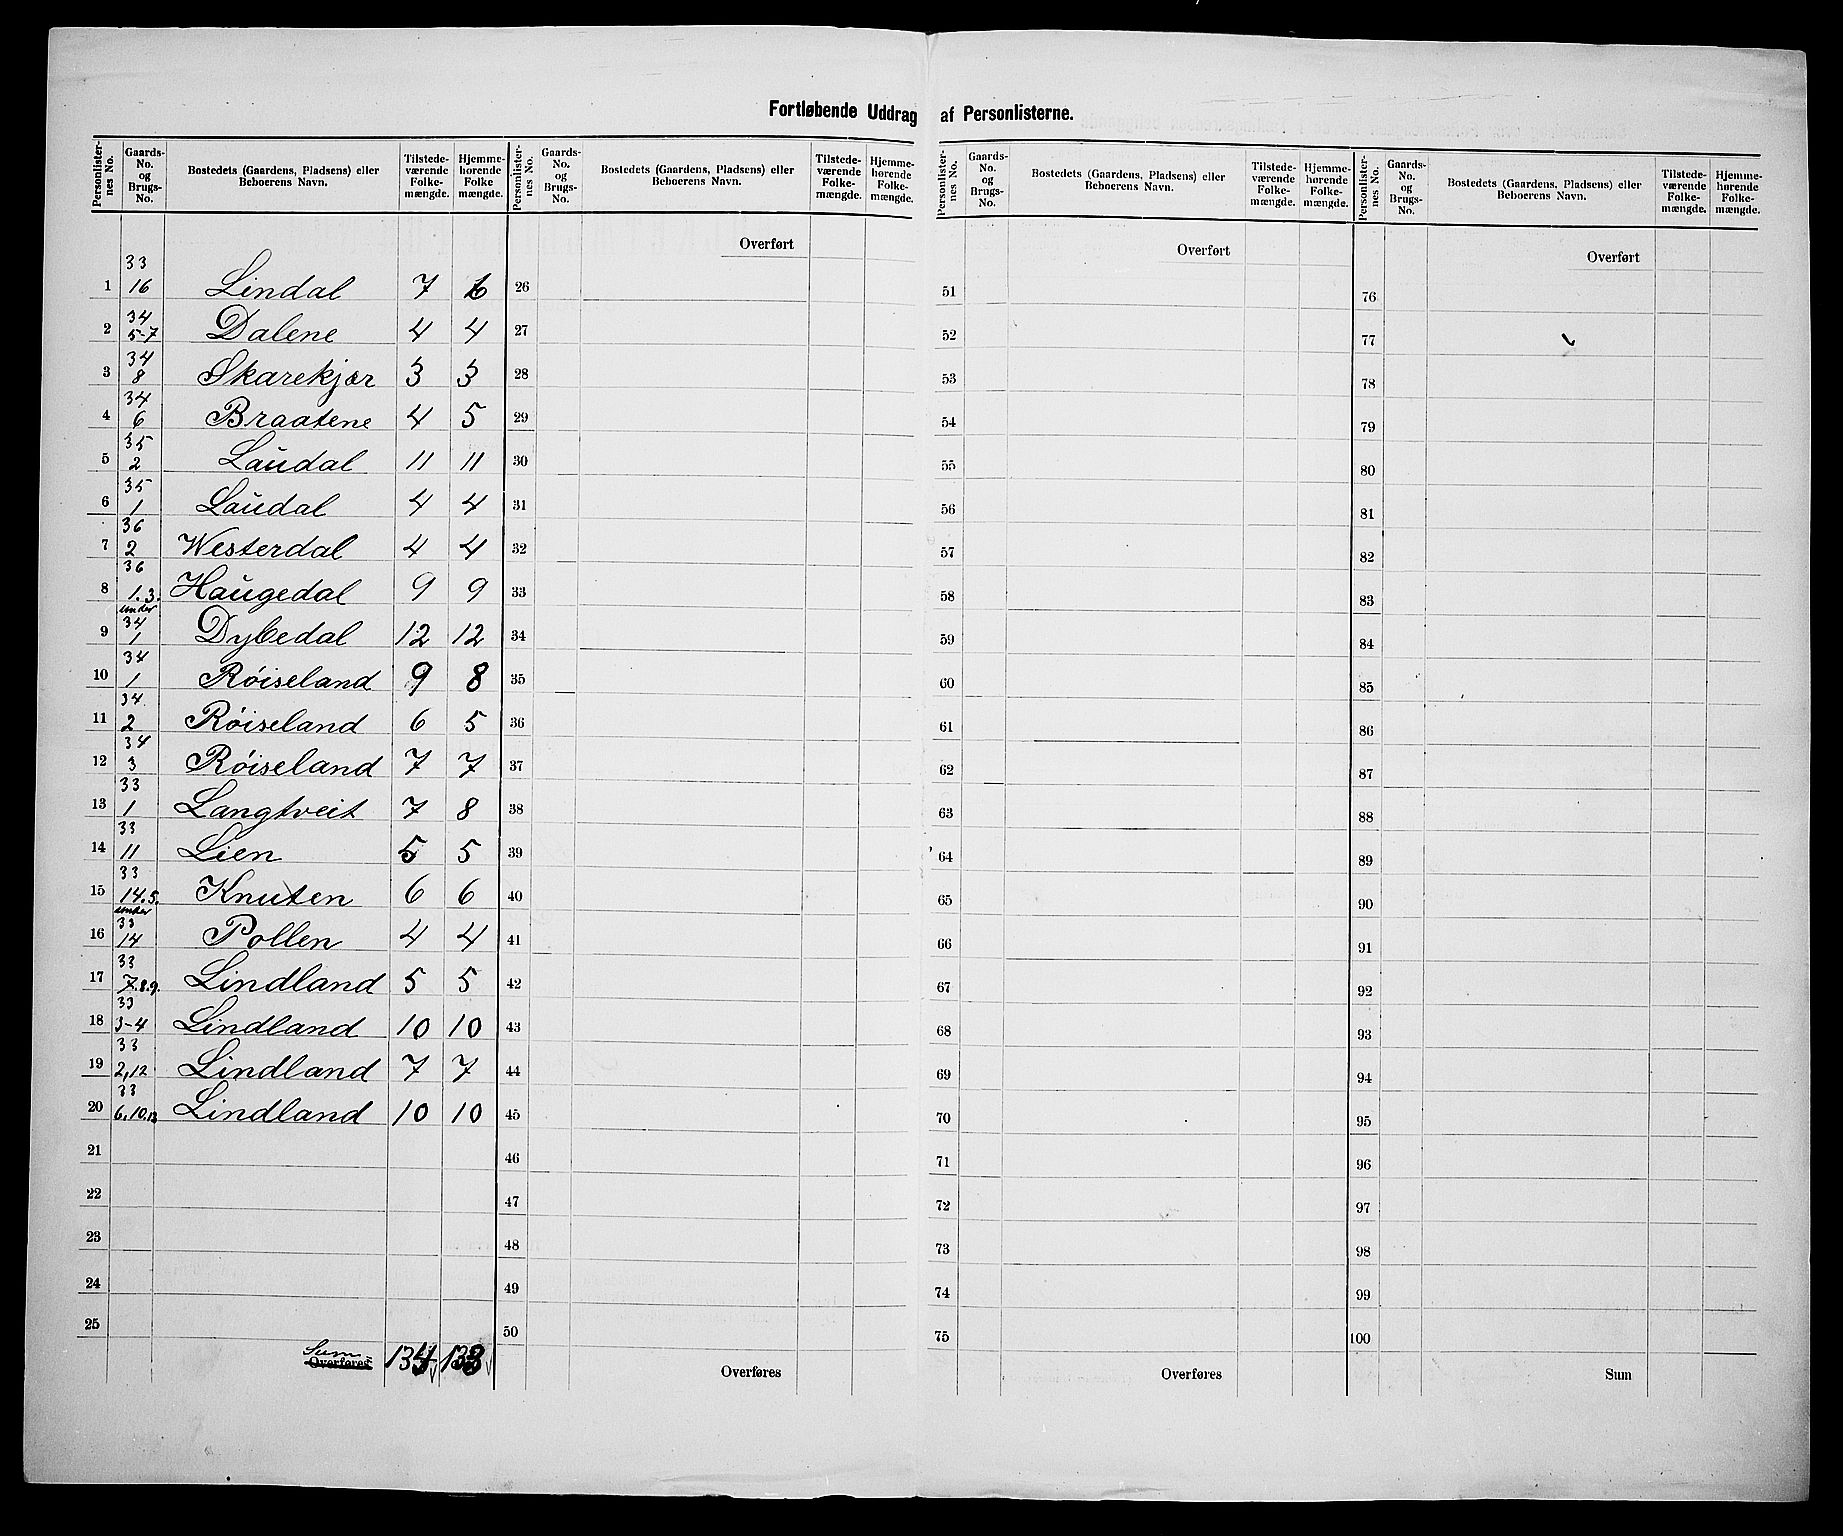 Fortløbende Uddrag af Personlisterne.
Personlister-nes No. | Gaards-No. og Brugs-No. | Bostedets (Gaardens, Pladsens) eller Beboerens Navn. | Tilstede-værende Folke-mængde. | Hjemme-hørende Folke mængde.
Personlister-nes No. | Gaards-No. og Brugs-No. | Bostedets (Gaardens, Pladsens) eller Beboerens Navn. | Tilstede-værende Folke-mængde. | Hjemme-hørende Folke-mængde.
Personlister-nes No. | Gaards-No. og Brugs-No. | Bostedets (Gaardens, Pladsens) eller Beboerens Navn. | Tilstede-værende Folke-mængde. | Hjemme-hørende Folke-mængde.
Personlister-nes No. | Gaards-No. og Brugs-No. | Bostedets (Gaardens, Pladsens) eller Beboerens Navn. | Tilstede-værende Folke-mængde. | Hjemme-hørende Folke-mængde.
Overført Overført Overført
1 33 16 Lindal 7 6 26 51 76
2 34 5-7 Dalene 4 4 27 52 77
3 34 8 Skarekjær 3 3 28 53 78
4 34 6 Braatene 4 5 29 54 79
5 35 2 Laudal 11 11 30 55 80
6 35 1 Laudal 4 4 31 56 81
7 36 2 Westerdal 4 4 32 57 82
8 36 1.3. Haugedal 9 9 33 58 83
9 under 34 1 Dybedal 12 12 34 59 84
10 34 1 Røiseland 9 8 35 60 85
11 34 2 Røiseland 6 5 36 61 86
12 34 3 Røiseland 7 7 37 62 87
13 33 1 Langtveit 7 8 38 63 88
14 33 11 Lien 5 5 39 64 89
15 33 14.5. Knuten 6 6 40 65 90
16 under 33 14 Pollen 4 4 41 66 91
17 33 7.8.9. Lindland 5 5 42 67 92
18 33 3-4 Lindland 10 10 43 68 93
19 33 2,12 Lindland 7 7 44 69 94
20 33 6.10.13 Lindland 10 10 45 70 95
21 46 71 96
22 47 72 97
23 48 73 98
24 49 74 99
25 50 75 100
Sum Overføres 134 133 Overføres Overføres Sum